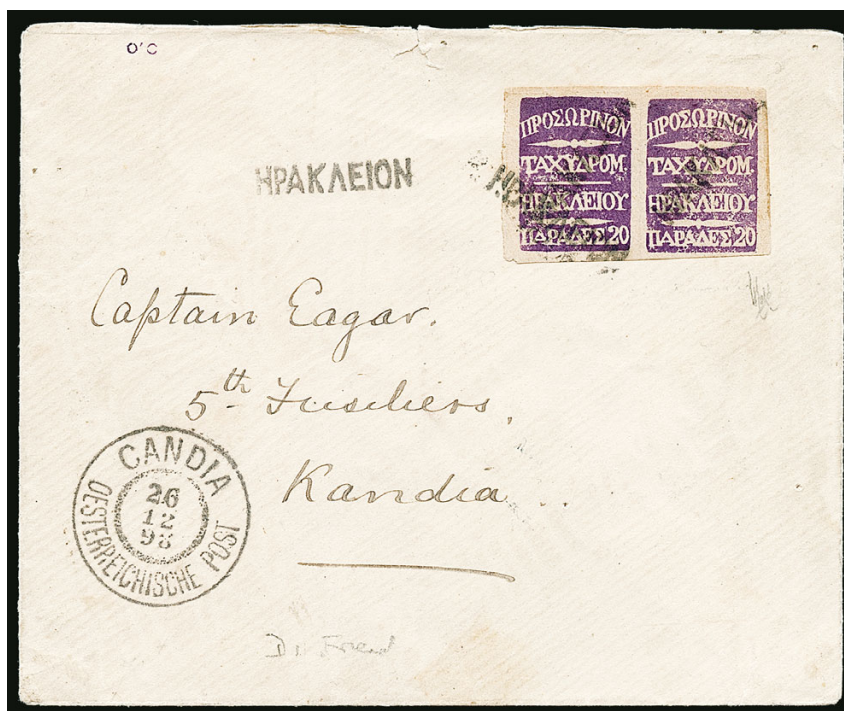 O'C
ΠΡΟΣΩΡΙΝΟΝ
ΤΑΧΥΔΡΟΜ.
ΗΡΑΚΛΕΙΟΥ
ΠΑΡΑΔΕΣ 20
ΠΡΟΣΩΡΙΝΟΝ
ΤΑΧΥΔΡΟΜ.
ΗΡΑΚΛΕΙΟΥ
ΠΑΡΑΔΕΣ 20
ΗΡΑΚΛΕΙΟΝ
Captain Eagar.
5th Fusiliers,
Kandia
CANDIA
26
12
98
OESTERREICHISCHE POST